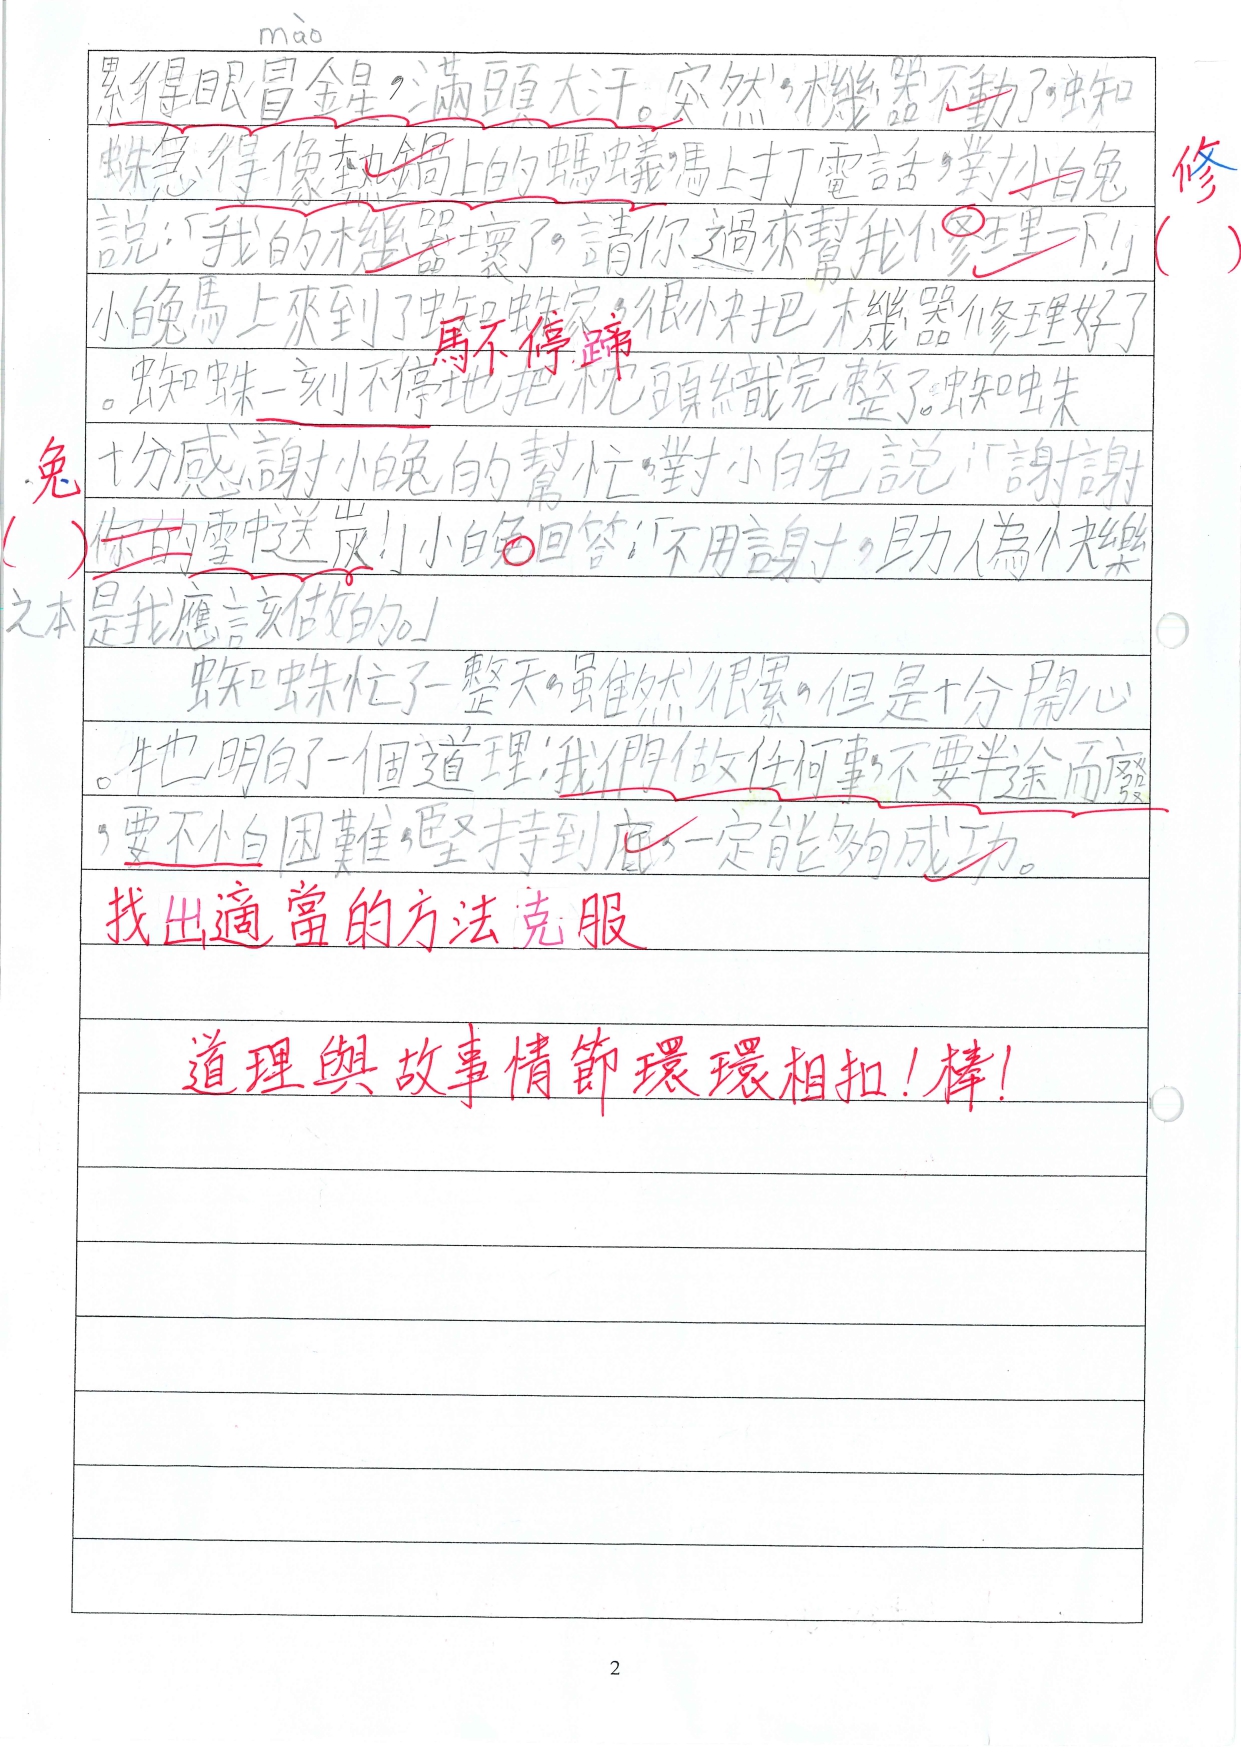 mào
累得眼冒金星，滿頭大汗。突然，機器不動了，蜘
蛛急得像熱鍋上的螞蟻，馬上打電話，對小白兔
修
說：「我的機器壞了，請你過來幫我修理一下！」
(  )
小白兔馬上來到了蜘蛛家，很快把機器修理好了
馬不停蹄
。蜘蛛一刻不停地把枕頭織完整了。蜘蛛
兔
十分感謝小白兔的幫忙，對小白兔說：「謝謝
(  )
你的雪中送炭！」小白兔回答：「不用謝，助人為快樂
之本
是我應該做的。」
蜘蛛忙了一整天，雖然很累，但是十分開心
。牠明白了一個道理：我們做任何事，不要半途而廢
，要不小白困難，堅持到底，一定能夠成功。
找出適當的方法克服
道理與故事情節環環相扣！棒！
2